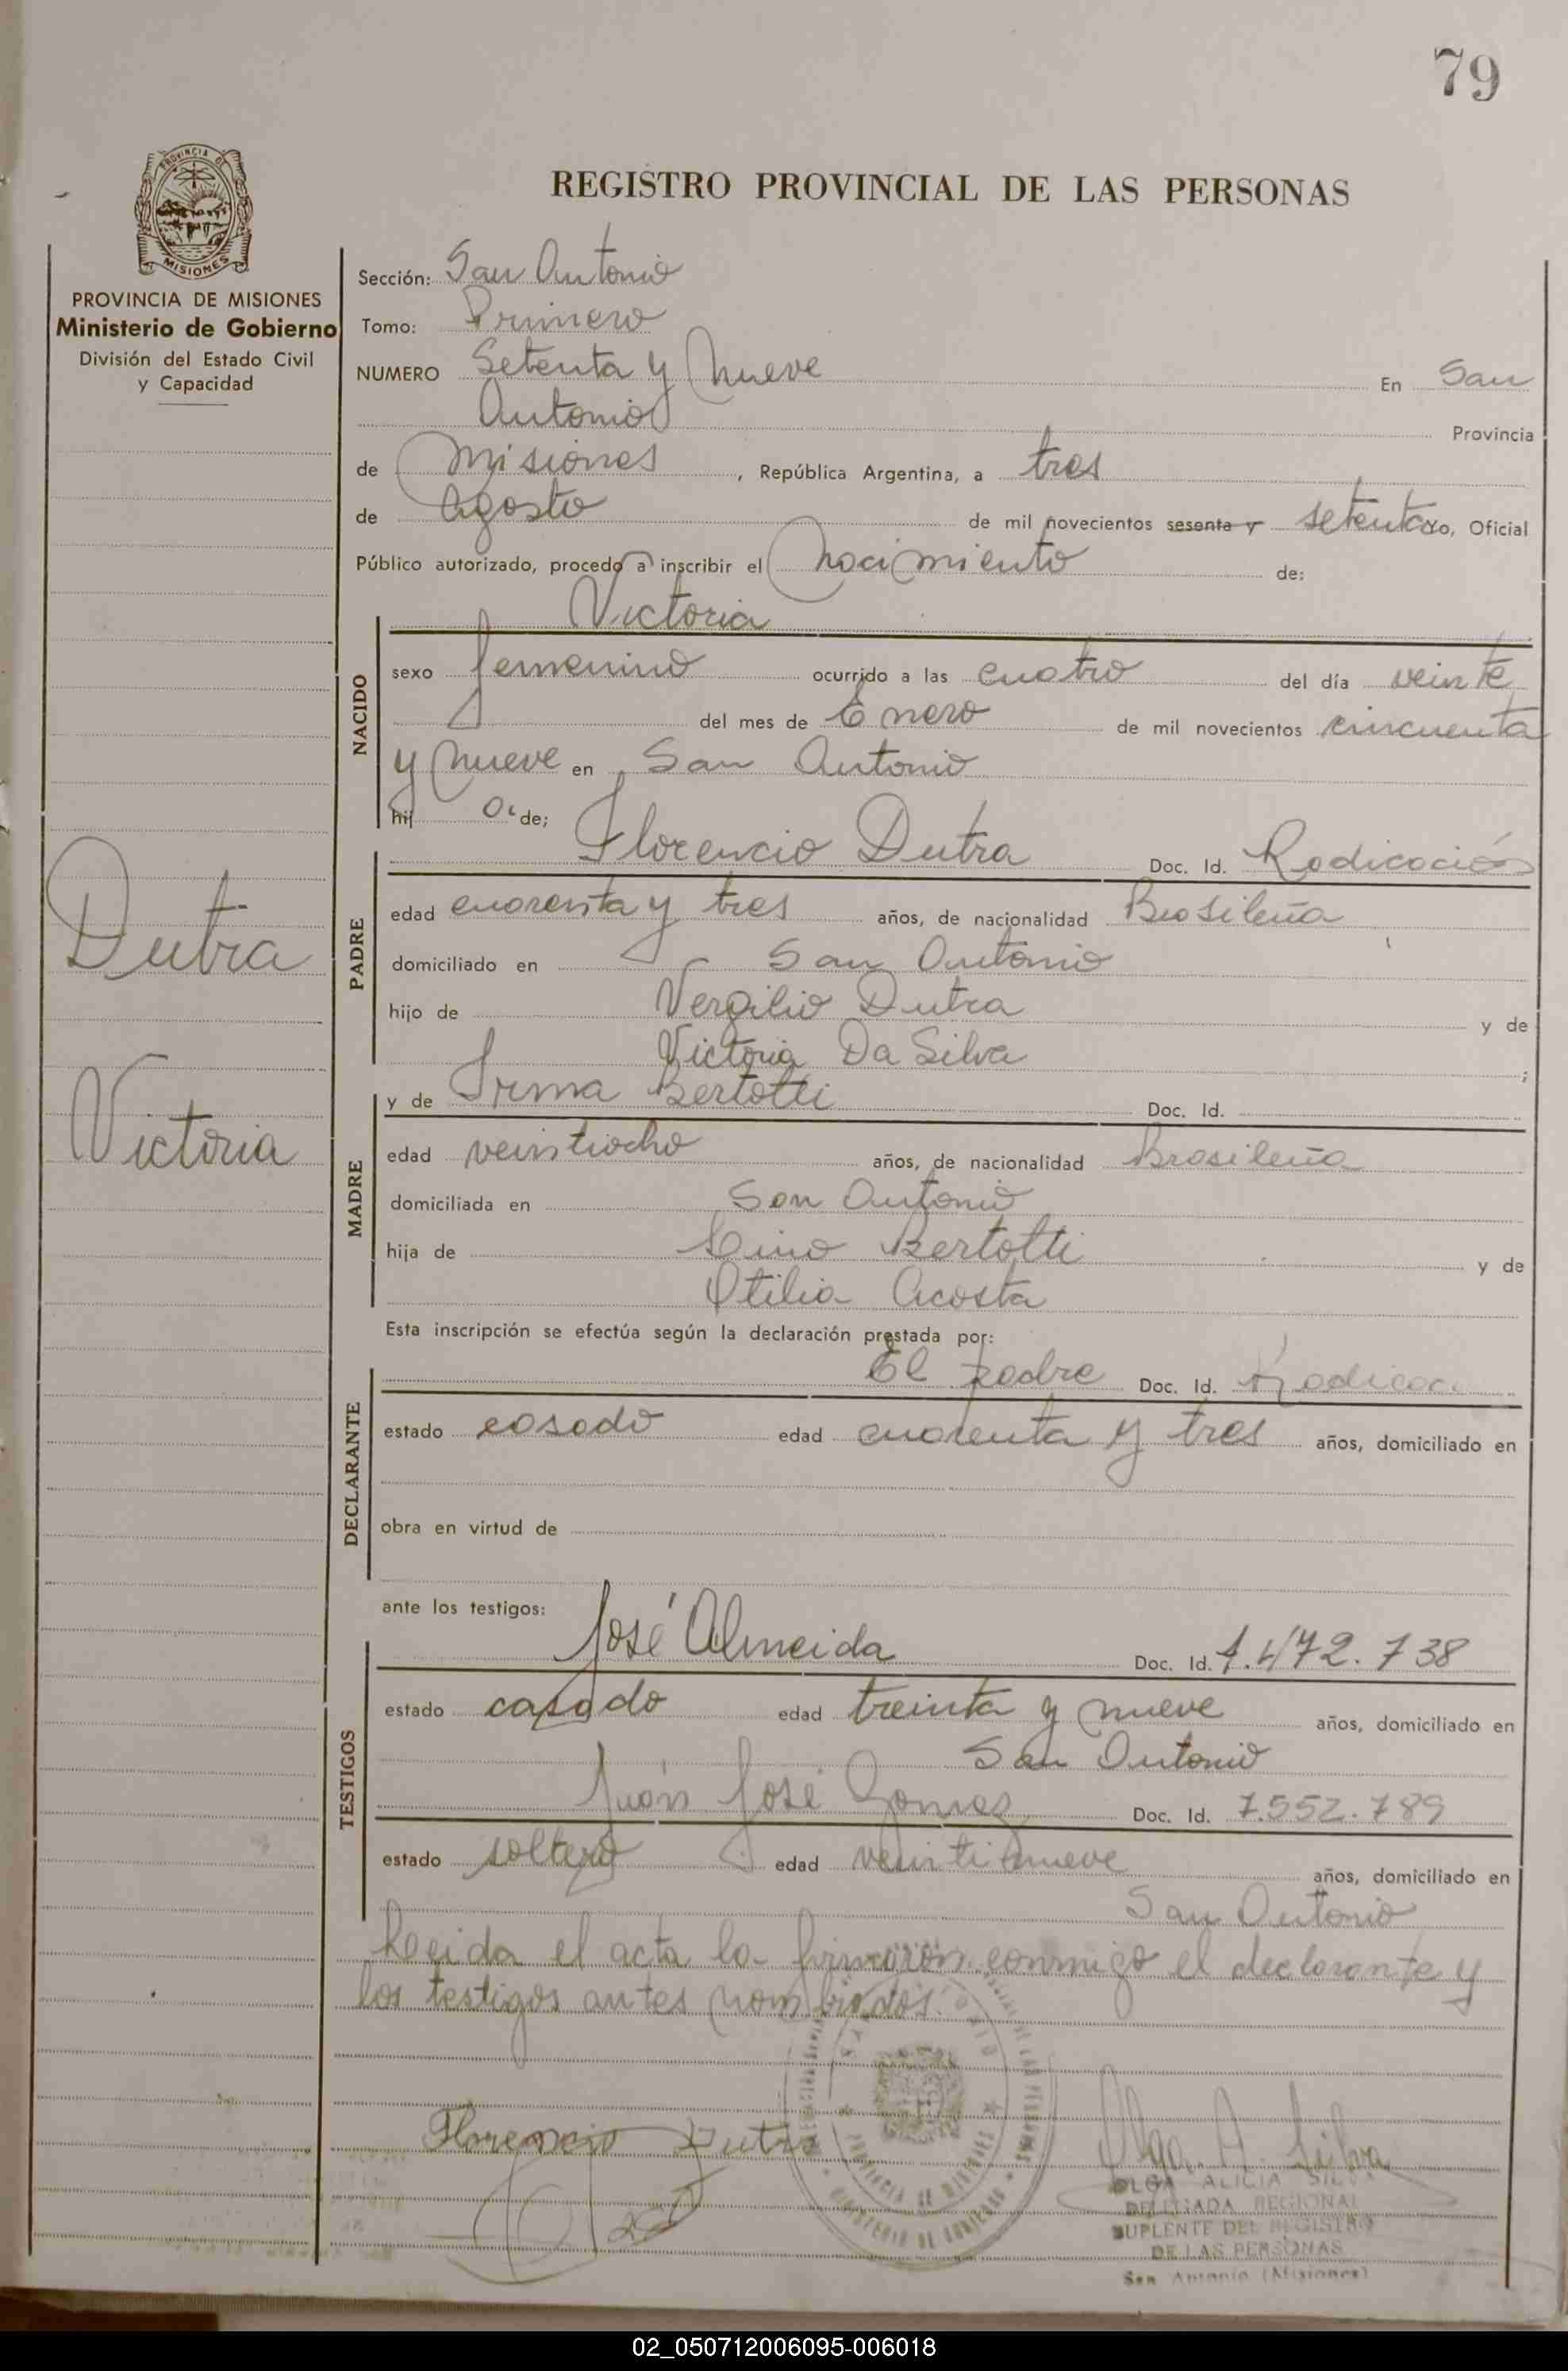 79
PROVINCIA DE
MISIONES
REGISTRO PROVINCIAL DE LAS PERSONAS
PROVINCIA DE MISIONES
Ministerio de Gobierno
División del Estado Civil
y Capacidad
Sección: San Antonio
Tomo: Primero
NUMERO Setenta y Nueve En San
Antonio Provincia
de Misiones, República Argentina, a tres
de Agosto de mil novecientos sesenta y setenta yo, Oficial
Público autorizado, procedo a inscribir el Nacimiento de:
Victoria
NACIDO
sexo femenino ocurrido a las cuatro del día veinte
del mes de Enero de mil novecientos cincuenta
y nueve en San Antonio
hij a de;
PADRE
Florencio Dutra Doc. Id. Radicación
edad cuarenta y tres años, de nacionalidad Brasileña
domiciliado en San Antonio
hijo de Vergilio Dutra y de
Victoria Da Silva ;
Dutra
Victoria
MADRE
y de Irma Bertotti Doc. Id.
edad veintiocho años, de nacionalidad Brasileña
domiciliada en San Antonio
hija de Bertotti y de
Otilia Acosta
Esta inscripción se efectúa según la declaración prestada por:
DECLARANTE
El padre Doc. Id.
estado casado edad cuarenta y tres años, domiciliado en
obra en virtud de
ante los testigos:
TESTIGOS
José Almeida Doc. Id. 1.472.738
estado casado edad treinta y nueve años, domiciliado en
San Antonio
Juan José Gomes Doc. Id. 7.552.789
estado soltero edad veintinueve años, domiciliado en
San Antonio
Leida el acta la firmaron conmigo el declarante y
los testigos antes nombrados.
Florencio Dutra
Olga A. Silva
OLGA ALICIA SILVA
DELEGADA REGIONAL
SUPLENTE DEL REGISTRO
DE LAS PERSONAS
San Antonio (Misiones)
PROVINCIA DE MISIONES
MINISTERIO DE GOBIERNO
02_050712006095-006018